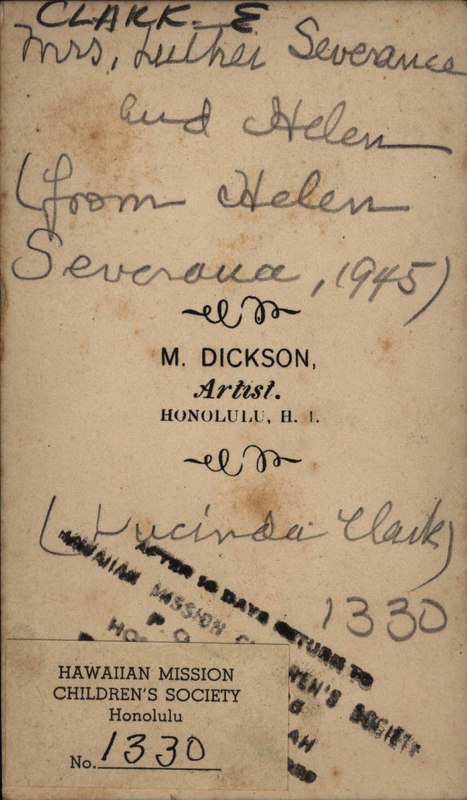 CLARK. E
Mrs. Luther Severance
and Helen
(from Helen
Severance, 1945)
M. DICKSON,
Artist.
HONOLULU, H. I.
(Lucinda Clark)
1330
AFTER 10 DAYS RETURN TO
HAWAIIAN MISSION C REN'S SOCIETY
P. O.
HO AH
HAWAIIAN MISSION
CHILDREN'S SOCIETY
Honolulu
No. 1330